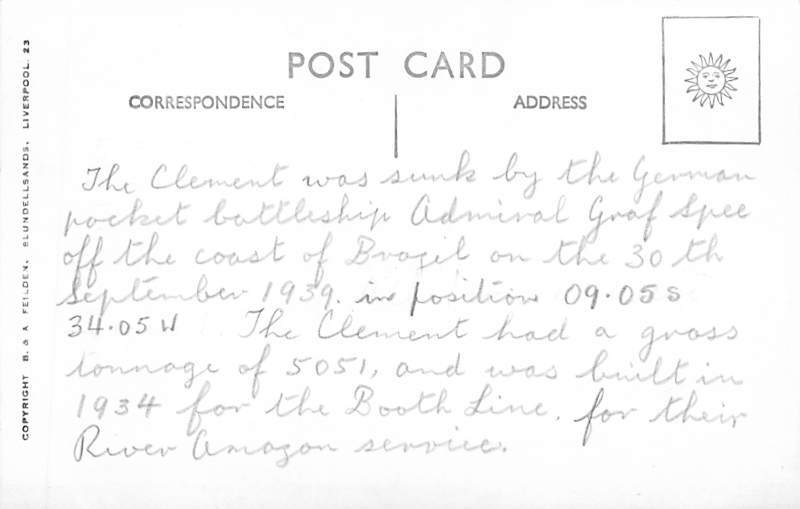 POST CARD
CORRESPONDENCE
ADDRESS
The Clement was sunk by the German
pocket battleship Admiral Graf Spee
off the coast of Brazil on the 30 th
September 1939. in position 09.05 S
34.05 W The Clement had a gross
tonnage of 5051, and was built in
1934 for the Booth Line. for their
River Amazon service.
COPYRIGHT B. & A. FEILDEN. BLUNDELLSANDS. LIVERPOOL. 23